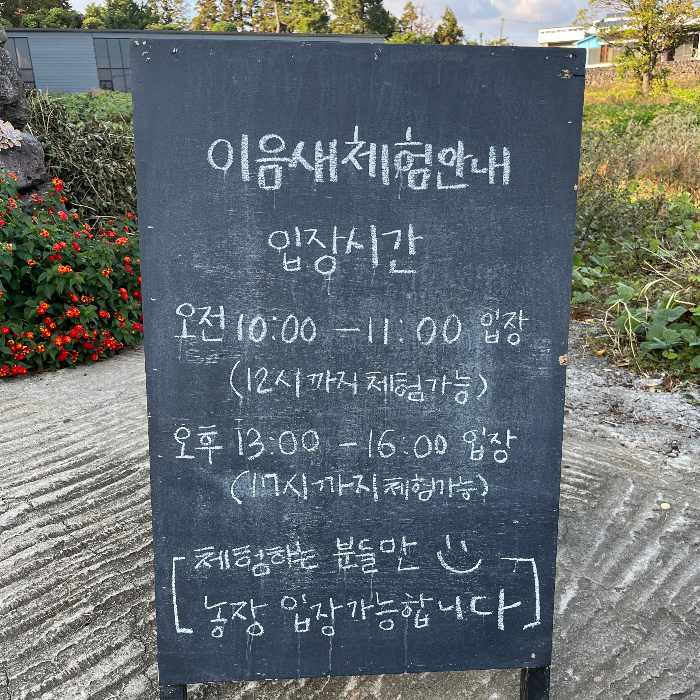 이음새체험안내
입장시간
오전 10:00 – 11:00 입장
(12시까지 체험가능)
오후 13:00 – 16:00 입장
(17시까지체험가능)
[체험하는 분들만
농장 입장가능합니다]